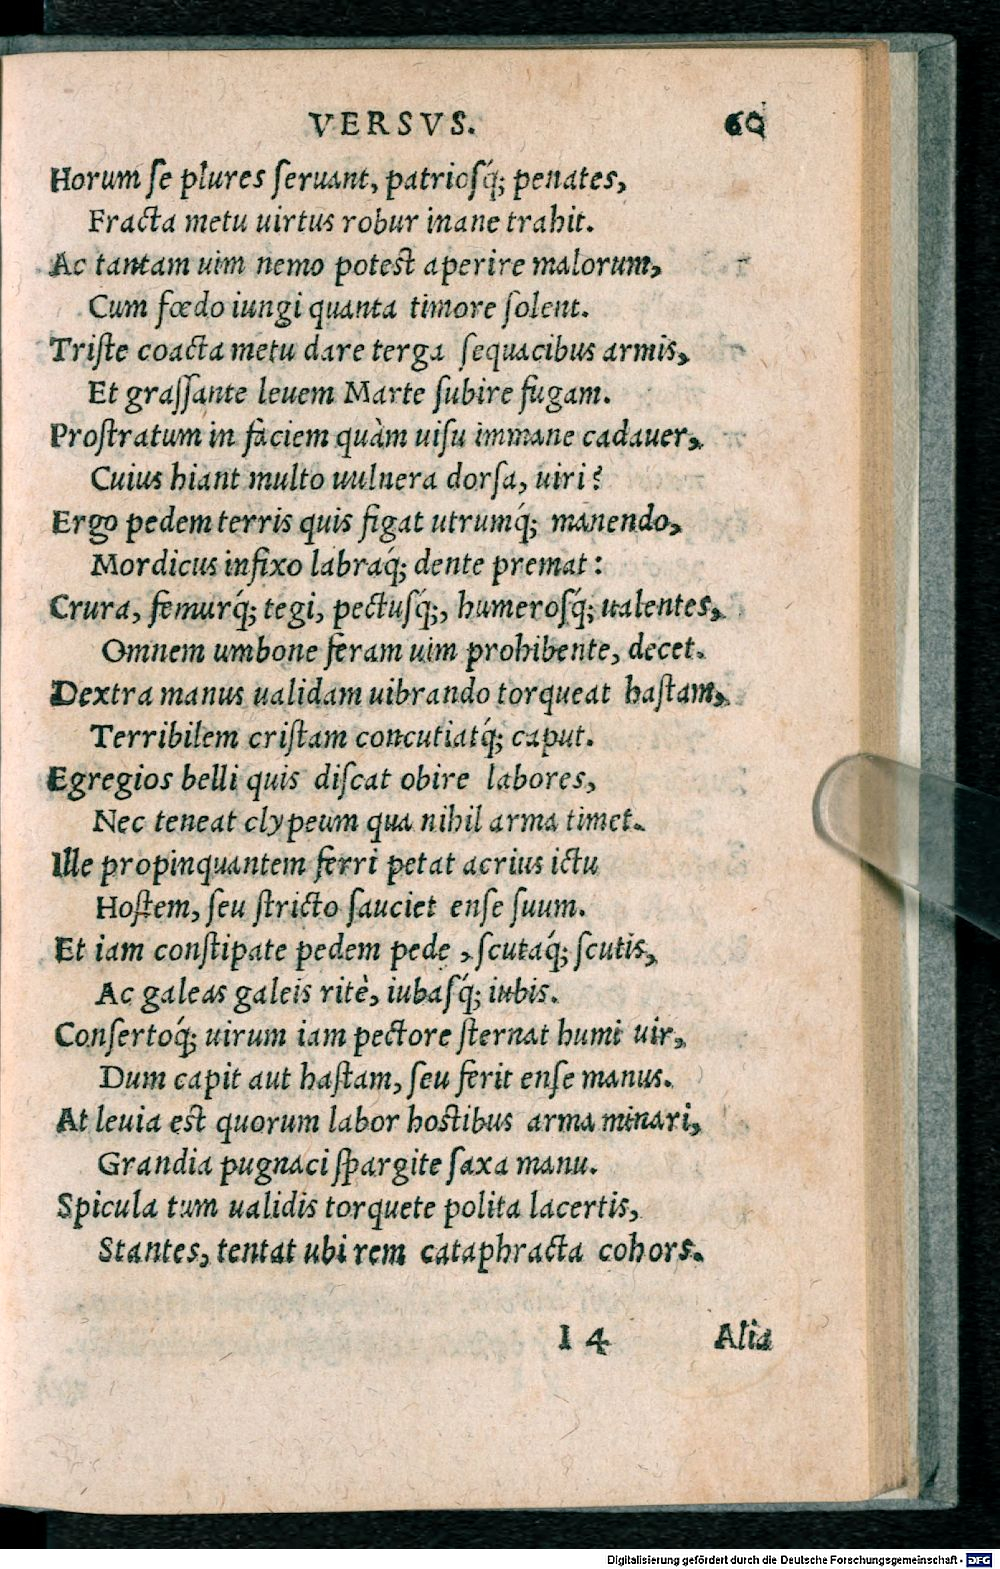 VERSVS. 60
Horum se plures seruant, patriosq́; penates,
Fracta metu uirtus robur inane trahit.
Ac tantam uim nemo potest aperire malorum,
Cum fœdo iungi quanta timore solent.
Triste coacta metu dare terga sequacibus armis,
Et grassante leuem Marte subire fugam.
Prostratum in faciem quàm uisu immane cadauer,
Cuius hiant multo uulnera dorsa, uiri?
Ergo pedem terris quis figat utrumq́; manendo,
Mordicus infixo labraq́; dente premat:
Crura, femurq́; tegi, pectusq́;, humerosq́; ualentes,
Omnem umbone feram uim prohibente, decet.
Dextra manus ualidam uibrando torqueat hastam,
Terribilem cristam concutiatq́; caput.
Egregios belli quis discat obire labores,
Nec teneat clypeum qua nihil arma timet.
Ille propinquantem ferri petat acrius ictu
Hostem, seu stricto sauciet ense suum.
Et iam constipate pedem pede, scutaq́; scutis,
Ac galeas galeis ritè, iubasq́; iubis.
Consertoq́; uirum iam pectore sternat humi uir,
Dum capit aut hastam, seu ferit ense manus.
At leuia est quorum labor hostibus arma minari,
Grandia pugnaci spargite saxa manu.
Spicula tum ualidis torquete polita lacertis,
Stantes, tentat ubi rem cataphracta cohors.
I 4 Alia
Digitalisierung gefördert durch die Deutsche Forschungsgemeinschaft - DFG